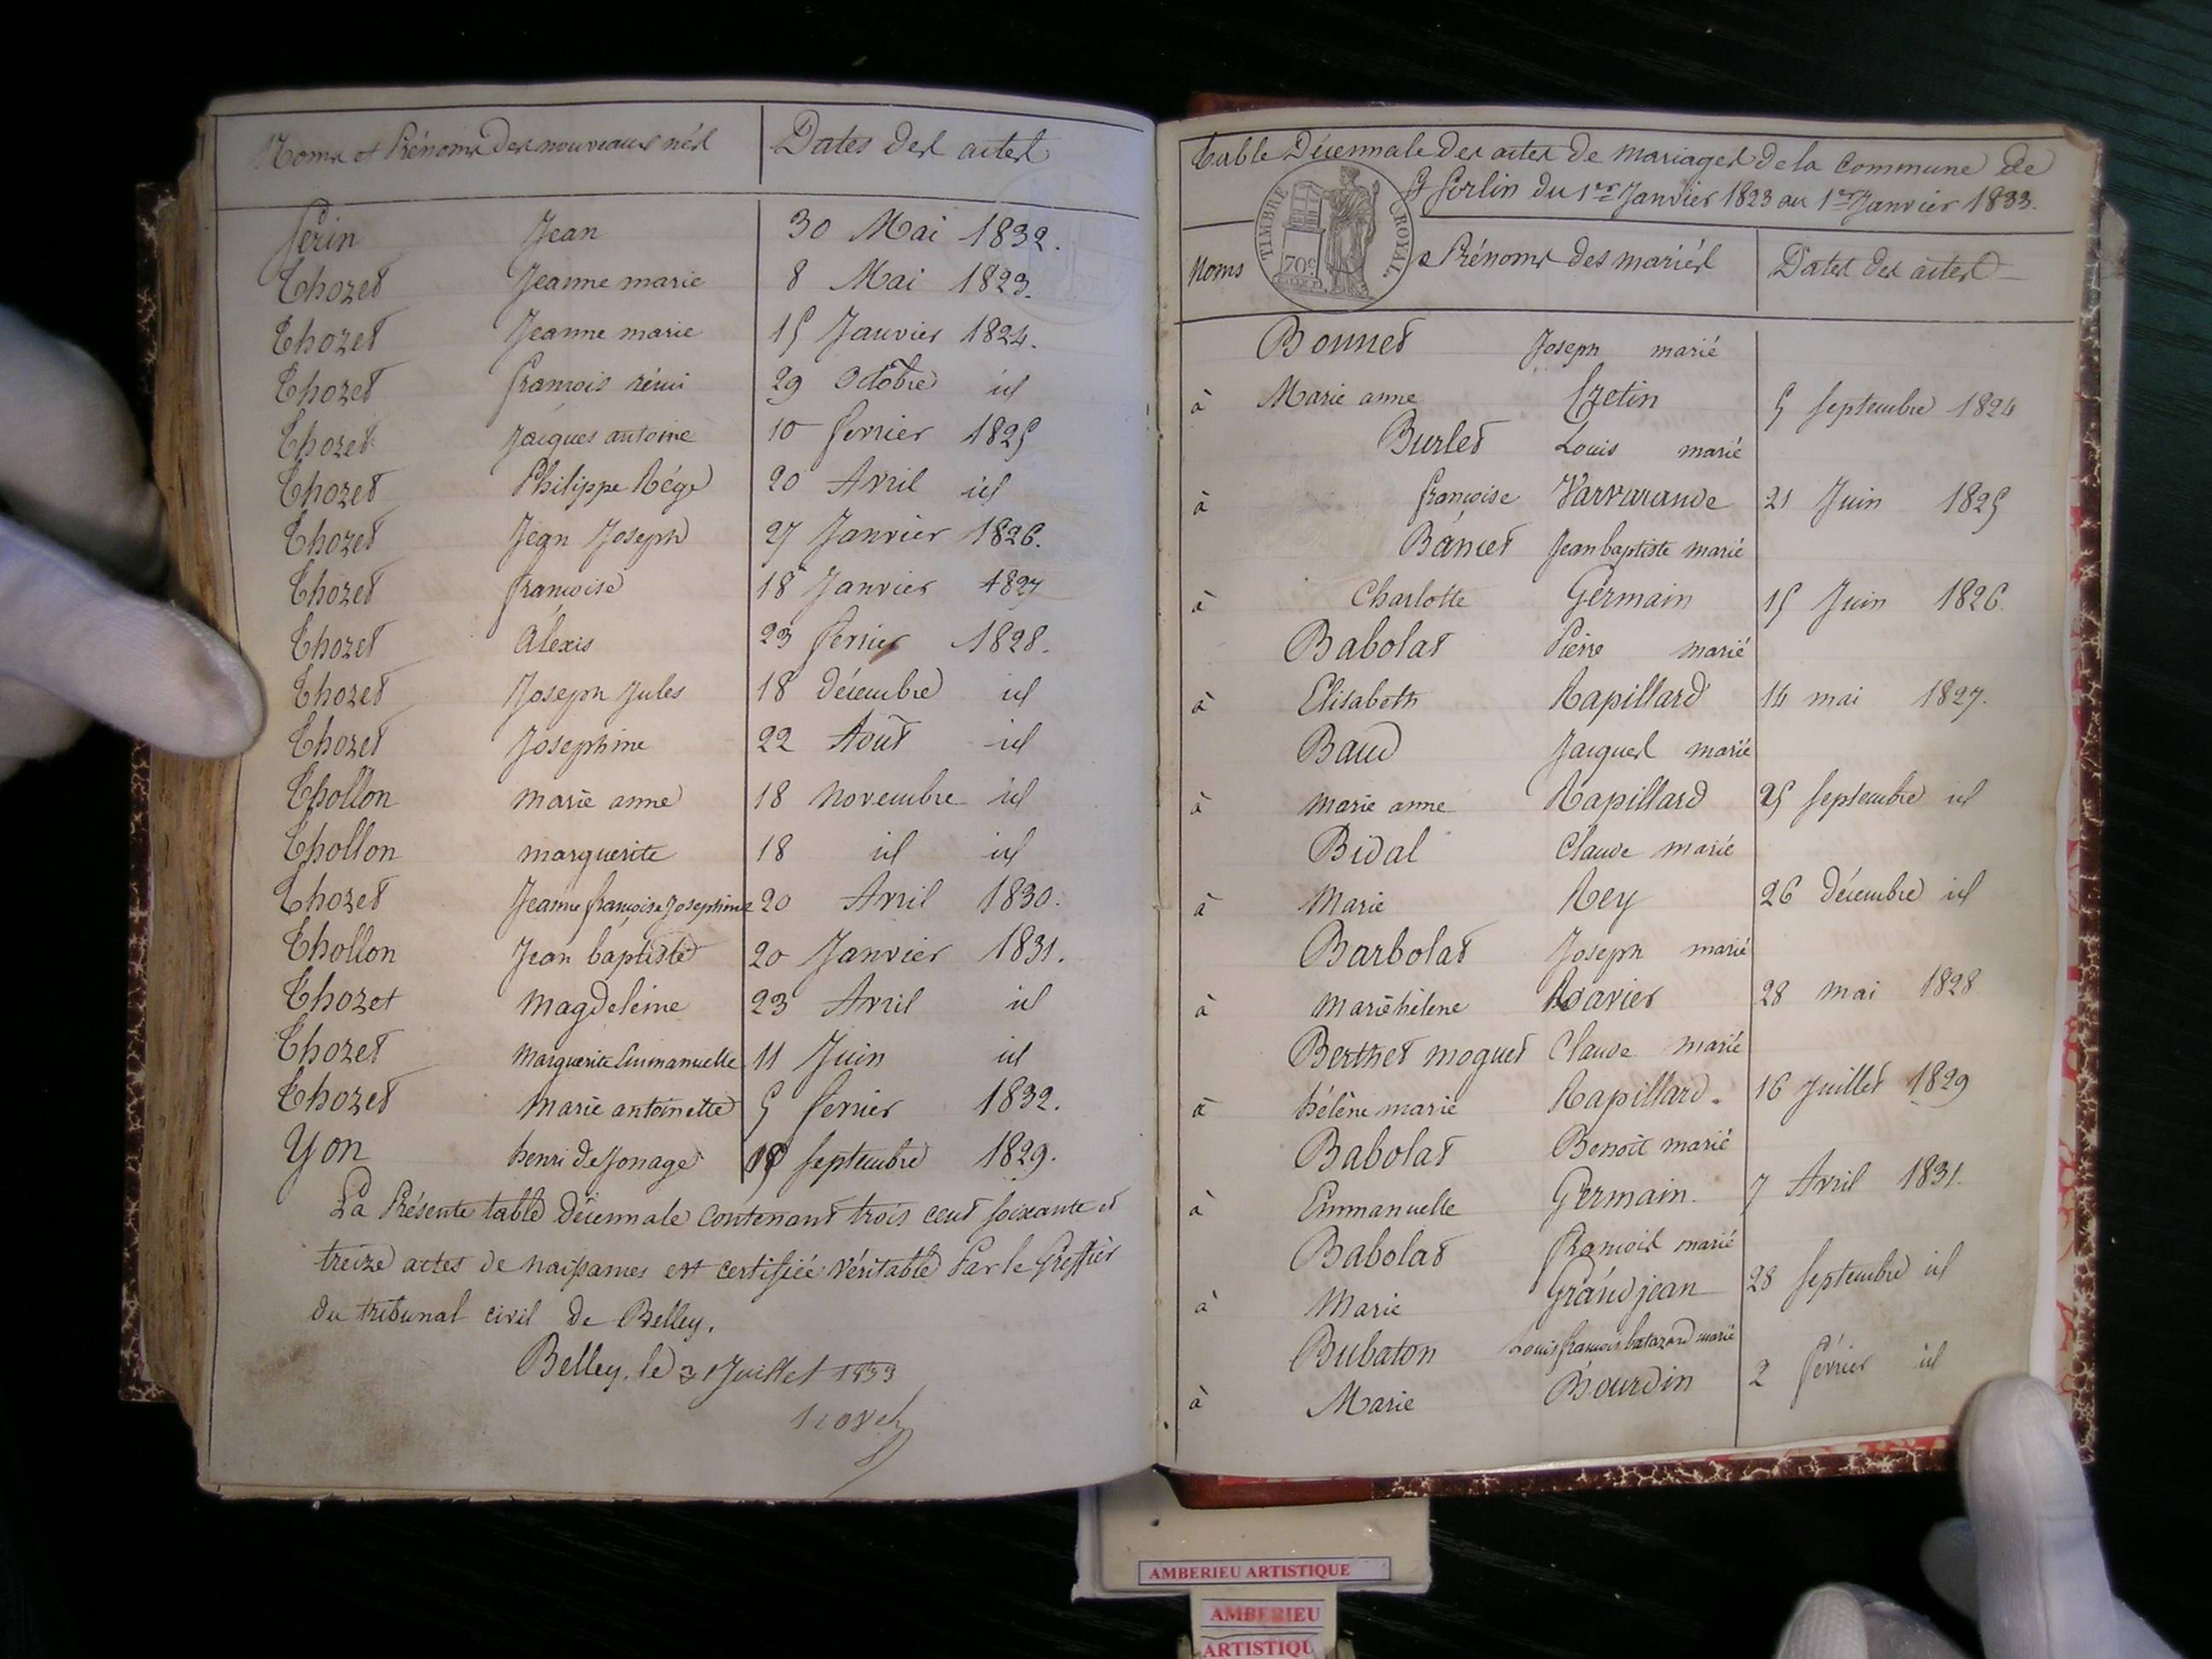 Noms et Prénoms des nouveaux nés Dates des actes
Serin Jean 30 Mai 1832.
Thozet Jeanne marie 8 Mai 1823.
Thozet Jeanne marie 15 Janvier 1824.
Thozet françois rémi 29 Octobre id
Thozet Jacques antoine 10 fevrier 1825
Thozet Philippe Régé 20 Avril id
Thozet Jean Joseph 27 Janvier 1826.
Thozet françoise 18 Janvier 1827
Thozet Alexis 23 fevrier 1828.
Thozet Joseph Jules 18 décembre id
Thozet Josephine 22 Aout id
Thollon marie anne 18 novembre id
Thollon marguerite 18 id id
Thozet Jeanne françoise Josephine 20 Avril 1830.
Thollon Jean baptiste 20 Janvier 1831.
Thozet Magdeleine 23 Avril id
Thozet Marguerite Emmanuelle 11 Juin id
Thozet Marie antoinette 5 fevrier 1832.
Yon henri de Jonage septembre 1829.
La Présente table décennale contenant trois cent soixante et
treize actes de naissances est certifiée véritable Par le Greffier
du tribunal civil de Belley.
Belley, le 31 Juillet 1833
Table Décennale des actes de Mariages de la Commune de
St Sorlin du 1er Janvier 1823 au 1er Janvier 1833.
TIMBRE ROYAL
70c
Noms & Prénoms des mariés Dates des actes
Bonnet Joseph marié
à Marie anne 5 septembre 1824
Burlet Louis marié
à françoise Varvarande 21 Juin 1825
Bancet Jean baptiste marié
à Charlotte Germain 15 Juin 1826.
Babolat Pierre marié
à Elisabeth Rapillard 14 mai 1827.
Baud Jacques marié
à Marie anne Rapillard 25 septembre id
Bidal Claude marié
à Marie Rey 26 décembre id
Barbolat Joseph marié
à Marie hélene Ravier 28 mai 1828
Berthet moguet Claude marié
à hélène marie Rapillard. 16 Juillet 1829
Babolat Benoit marié
à Emmanuelle Germain. 7 Avril 1831.
Babolat françois marié
à Marie Grandjean 28 septembre id
Bubaton Louis françois batazard marié
à Marie Bourdin 2 février id
AMBERIEU ARTISTIQUE
AMBERIEU
ARTISTIQU